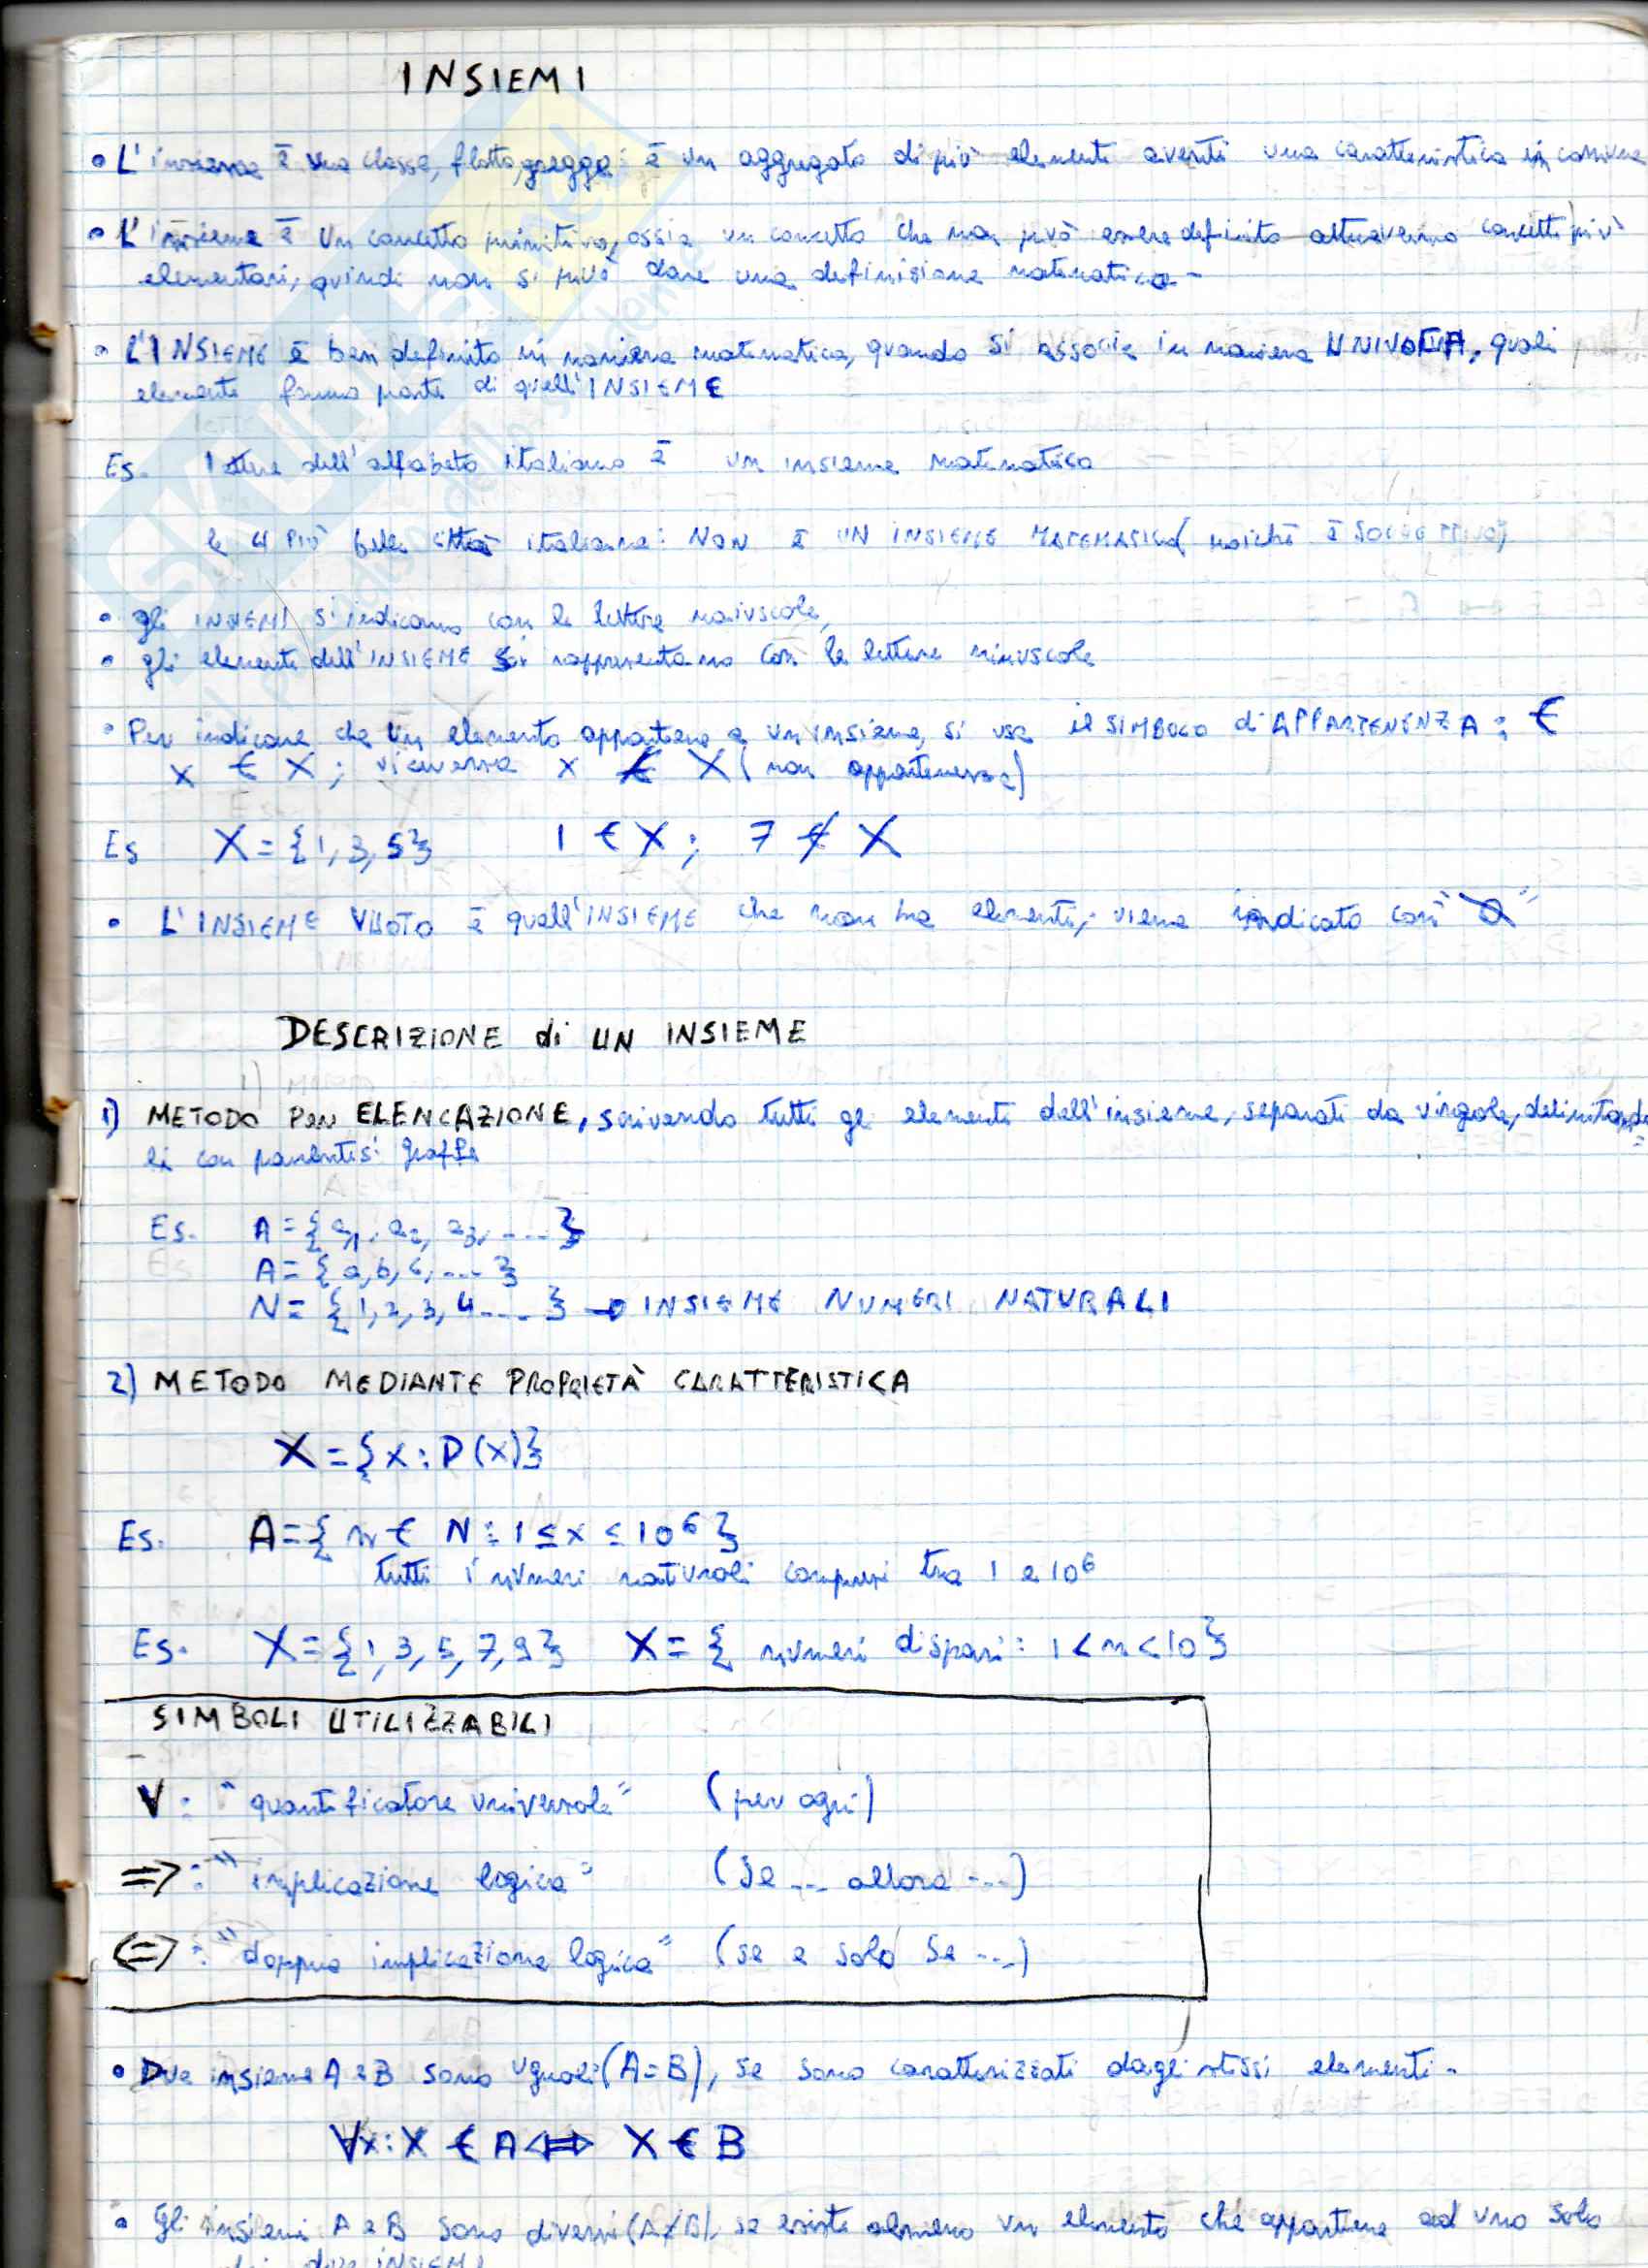 INSIEMI
• L'insieme è una classe, flotta, gregge: è un aggregato di più elementi aventi una caratteristica in comune
• L'insieme è un concetto primitivo, ossia un concetto che non può essere definito attraverso concetti più
elementari, quindi non si può dare una definizione matematica-
• L'INSIEME è ben definito in maniera matematica, quando si associa in maniera UNIVOCA, quali
elementi fanno parte di quell'INSIEME
Es. lettere dell'alfabeto italiano è un insieme matematico
le 4 più belle città italiane: NON è UN INSIEME MATEMATICO (poichè è SOGGETTIVO)
• gli INSIEMI s'indicano con le lettere maiuscole,
• gli elementi dell'INSIEME si rappresentano con le lettere minuscole
• Per indicare che un elemento appartiene a un insieme, si usa il SIMBOLO di APPARTENENZA: €
x € X; viceversa x ∉ X (non appartenenza)
Es X = {1, 3, 5} 1 € X; 7 ∉ X
• L'INSIEME VUOTO è quell'INSIEME che non ha elementi; viene indicato con "∅"
DESCRIZIONE di UN INSIEME
1) METODO Per ELENCAZIONE, scrivendo tutti gli elementi dell'insieme, separati da virgole, delimitando
li con parentesi graffe
Es. A = {a1, a2, a3, ....}
A = {a, b, c, ... }
N = {1, 2, 3, 4.... } → INSIEME NUMERI NATURALI
2) METODO MEDIANTE PROPRIETÀ CARATTERISTICA
X = {x : P(x)}
Es. A = { n € N : 1 ≤ x ≤ 10⁶ }
tutti i numeri naturali compresi tra 1 e 10⁶
Es. X = {1, 3, 5, 7, 9} X = { numeri dispari : 1 < n < 10 }
SIMBOLI UTILIZZABILI
∀: "quantificatore universale" (per ogni)
=>: "implicazione logica" (Se ... allora ...)
<=>: "doppia implicazione logica" (se e solo se ...)
• Due insieme A e B sono uguali (A = B), se sono caratterizzati dagli stessi elementi-
∀x: X € A <=> X € B
• Gli insiemi A e B sono diversi (A≠B), se esiste almeno un elemento che appartiene ad uno solo
dei due INSIEMI